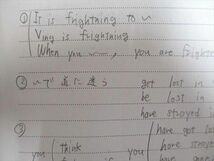 ① It is frightning to 〜
Ving is frightning
When you 〜, you are fright
② 〜で道に迷う
get lost in
be lost in
have strayed in
③
you think
you
have got lost
have stray
have